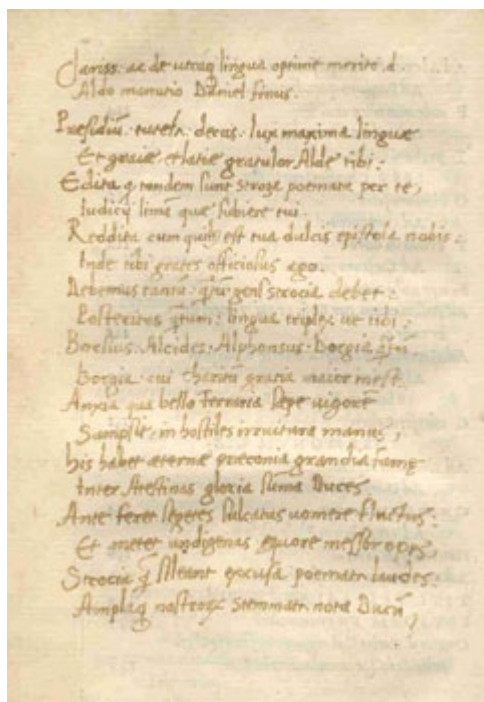 Clariss: ac de utraq; lingua optime merito d.
Aldo manutio Daniel finus.
Præsidiū. tutela. decus. lux maxima linguæ
Et graiæ, et latiæ gratulor Alde tibi:
Edita q tandem sunt strozæ poemata per te,
Iudicij limā quæ subiere tui.
Reddita cum est tua dulcis epistola nobis:
Inde tibi grates officiosus ago.
Debemus tantū gens strocia debet:
Posteritas q̄tum: lingua triplex ue tibi:
Borsius. Alcides. Alphonsus. Borgia
Borgia. cui charitū gratia maior inest.
Anxia qua bello Ferraria sæpe uigorē
Sampsit, in hostiles irruitura manus,
his habet æternæ præconia grandia famæ
Inter Atestinas gloria sūma Duces
Ante feret segetes sulcatus uomere fluctus:
Et metet undigenas equore messor opes,
Strocia q̄ sileant excusa poemata laudes:
Amplaq; nostrorum stemmata nota Ducū,